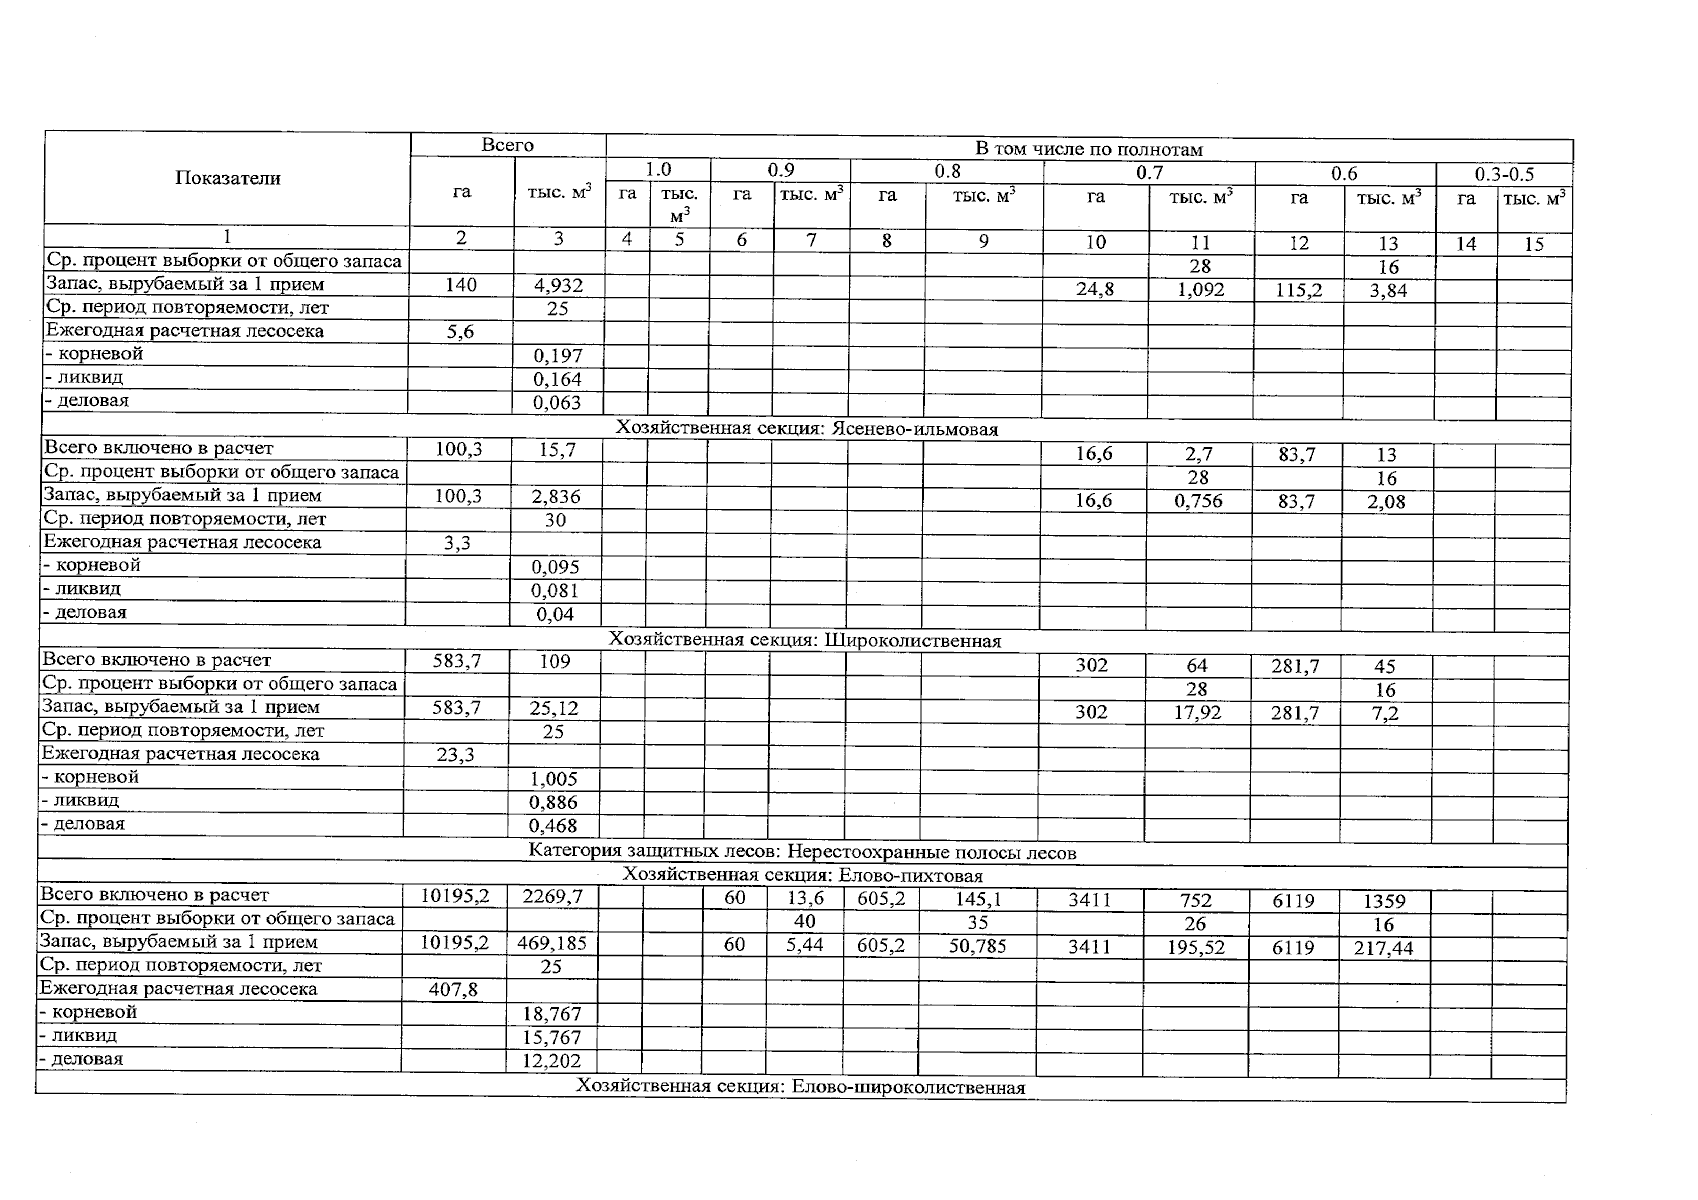 Показатели Всего В том числе по полнотам
1.0 0.9 0.8 0.7 0.6 0.3-0.5
га тыс. м³ га тыс. м³ га тыс. м³ га тыс. м³ га тыс. м³ га тыс. м³ га тыс. м³
1 2 3 4 5 6 7 8 9 10 11 12 13 14 15
Ср. процент выборки от общего запаса 28 16
Запас, вырубаемый за 1 прием 140 4,932 24,8 1,092 115,2 3,84
Ср. период повторяемости, лет 25
Ежегодная расчетная лесосека 5,6
- корневой 0,197
- ликвид 0,164
- деловая 0,063
Хозяйственная секция: Ясенево-ильмовая
Всего включено в расчет 100,3 15,7 16,6 2,7 83,7 13
Ср. процент выборки от общего запаса 28 16
Запас, вырубаемый за 1 прием 100,3 2,836 16,6 0,756 83,7 2,08
Ср. период повторяемости, лет 30
Ежегодная расчетная лесосека 3,3
- корневой 0,095
- ликвид 0,081
- деловая 0,04
Хозяйственная секция: Широколиственная
Всего включено в расчет 583,7 109 302 64 281,7 45
Ср. процент выборки от общего запаса 28 16
Запас, вырубаемый за 1 прием 583,7 25,12 302 17,92 281,7 7,2
Ср. период повторяемости, лет 25
Ежегодная расчетная лесосека 23,3
- корневой 1,005
- ликвид 0,886
- деловая 0,468
Категория защитных лесов: Нерестоохранные полосы лесов
Хозяйственная секция: Елово-пихтовая
Всего включено в расчет 10195,2 2269,7 60 13,6 605,2 145,1 3411 752 6119 1359
Ср. процент выборки от общего запаса 40 35 26 16
Запас, вырубаемый за 1 прием 10195,2 469,185 60 5,44 605,2 50,785 3411 195,52 6119 217,44
Ср. период повторяемости, лет 25
Ежегодная расчетная лесосека 407,8
- корневой 18,767
- ликвид 15,767
- деловая 12,202
Хозяйственная секция: Елово-широколиственная